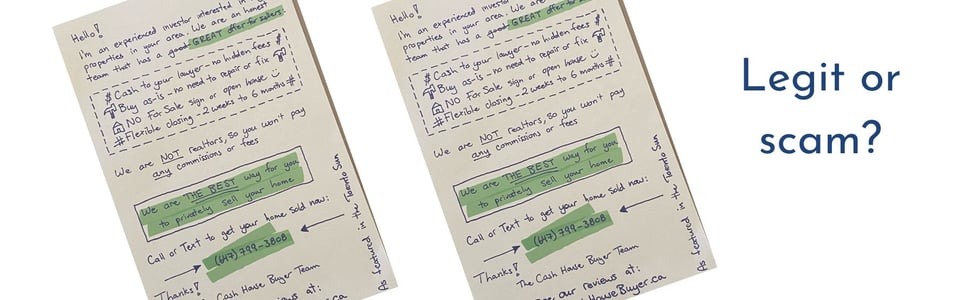 Hello!
I'm an experienced investor interested in
properties in your area. We are an honest
team that has a good GREAT offer for sellers.
$ Cash to your lawyer - no hidden fees $
Buy as-is - no need to repair or fix
NO For Sale sign or open house :)
# Flexible closing - 2 weeks to 6 months #
We are NOT realtors, so you won't pay
any commissions or fees
We are THE BEST way for you
to privately sell your home
Call or Text to get your home sold now:
(647) 799-3808
Thanks!
Cash House Buyer Team
reviews at:
.ca
featured in the Toronto Sun
Hello!
I'm an experienced investor interested in
properties in your area. We are an
team that has a good GREAT offer for
$ Cash to your lawyer - no hidden fees $
Buy as-is - no need to repair or fix
NO For Sale sign or open house :)
# Flexible closing - 2 weeks to 6 months #
We are NOT realtors, so you won't pay
any commissions or fees
We are THE BEST way for you
to privately sell your home
Call or Text to get your home sold now:
(647) 799-3808
Thanks!
The Cash House Buyer Team
our reviews at:
HouseBuyer.ca
As featured in the Toronto Sun
Legit or
scam?